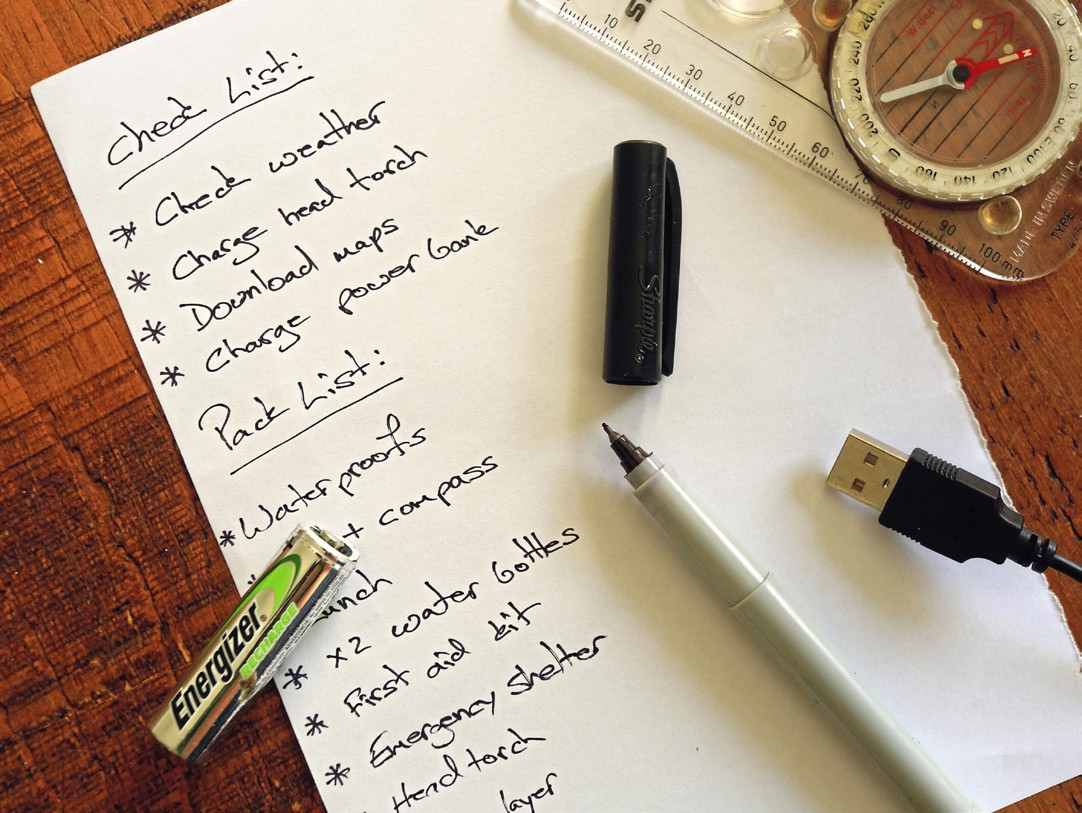 Check List:
* Check weather
* Charge head torch
* Download maps
* Charge powerbank
Pack List:
* Waterproofs
+ compass
unch
* x2 water bottles
* First aid kit
* Emergency shelter
Head torch
layer
Energizer
RECHARGE
Sharpie
10 20 30 40 50 60 70 80 90 100 mm
MADE IN SWEDEN
TYPE
N
S